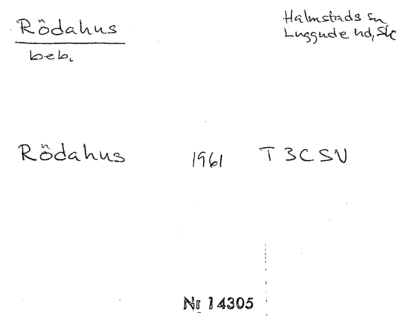 Rödahus
beb.
Halmstads sn
Luggude hd, Sk
Rödahus 1961 T 3C SV
Nr 14305